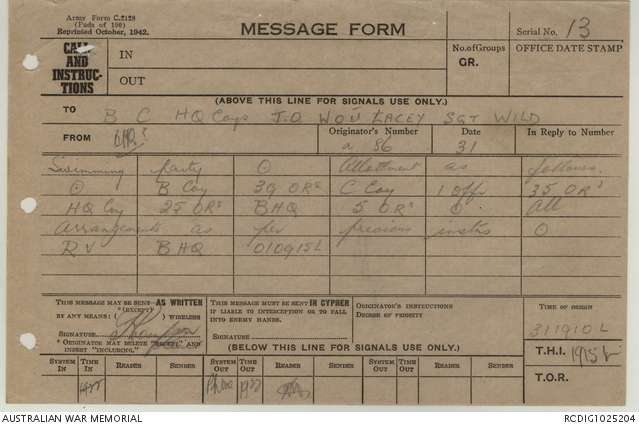 Army Form C.2128
(Pads of 100)
Reprinted October, 1942.
MESSAGE FORM
Serial No. 13
CALL
AND
INSTRUC-
TIONS
IN
OUT
No. of Groups
GR.
OFFICE DATE STAMP
(ABOVE THIS LINE FOR SIGNALS USE ONLY.)
TO B C HQ Coys I.O WOII LACEY SGT WILD
FROM BHQ
Originator's Number
a 86
Date
31
In Reply to Number
Swimming party ⊙ Allotment as follows
⊙ B Coy 39 ORs C Coy 1 Offr 35 ORs
HQ Coy 25 ORs BHQ 5 ORs ⊙ All
arrangements as per previous instrs ⊙
RV BHQ 010915L
THIS MESSAGE MAY BE SENT AS WRITTEN
* (EXCEPT)
BY ANY MEANS: WIRELESS
SIGNATURE.
* ORIGINATOR MAY DELETE "EXCEPT" AND
INSERT "INCLUDING."
THIS MESSAGE MUST BE SENT IN CYPHER
IF LIABLE TO INTERCEPTION OR TO FALL
INTO ENEMY HANDS.
SIGNATURE
ORIGINATOR'S INSTRUCTIONS
DEGREE OF PRIORITY
TIME OF ORIGIN
311910L
(BELOW THIS LINE FOR SIGNALS USE ONLY.)
T.H.I. 1915
T.O.R.
SYSTEM IN
TIME IN
READER
SENDER
SYSTEM OUT
TIME OUT
READER
SENDER
SYSTEM OUT
TIME OUT
READER
SENDER
AUSTRALIAN WAR MEMORIAL
RCDIG1025204